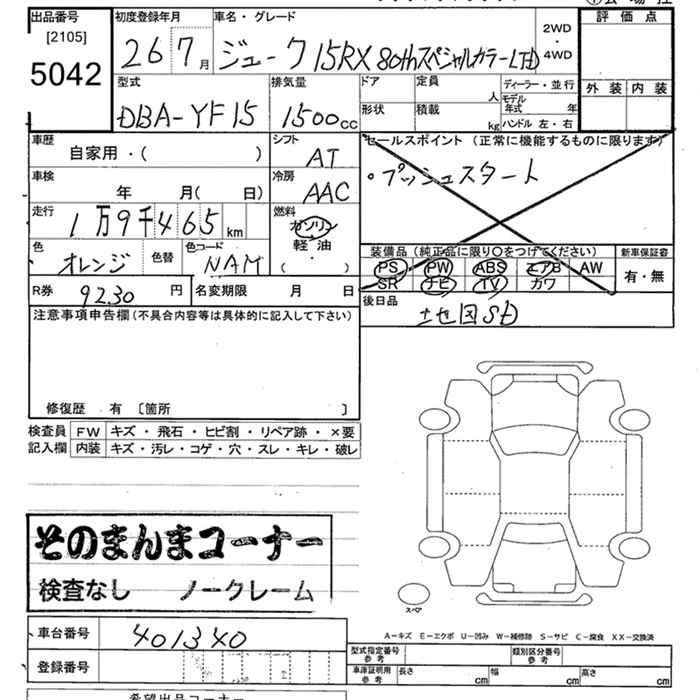 出品番号
[2105]
5042
初度登録年月
26 7月
車名・グレード
ジューク 15RX 80thスペシャルカラーLTD
2WD
4WD
評価点
外装 内装
型式
DBA-YF15
排気量
1500cc
ドア
定員
人
ディーラー・並行
形状
積載
kg
モデル年式 年
ハンドル 左・右
車歴
自家用・( )
シフト
AT
セールスポイント (正常に機能するものに限ります)
・プッシュスタート
車検
年 月( 日)
冷房
AAC
走行
1万9千465km
燃料
ガソリン
軽油
( ・ )
色
オレンジ
色替
色コード
NAM
装備品(純正品に限り○をつけてください)
PS PW ABS エアB AW
SR ナビ TV カワ
新車保証書
有・無
R券
9230円
名変期限 月 日
後日品
地図SD
注意事項申告欄(不具合内容等は具体的に記入して下さい)
修復歴 有 〔箇所 〕
検査員 FW キズ・飛石・ヒビ割・リペア跡・×要
記入欄 内装 キズ・汚レ・コゲ・穴・スレ・キレ・破レ
そのまんまコーナー
検査なし ノークレーム
スペア
車台番号
401340
登録番号
A-キズ E-エクボ U-凹み W-補修跡 S-サビ C-腐食 XX-交換済
型式指定番号
参考
類別区分番号
参考
車庫証明用
参考
長さ cm
幅 cm
高さ cm
希望出品コーナー